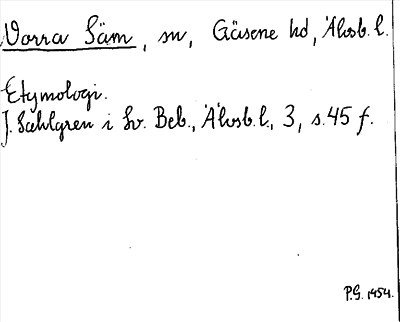 Norra Säm, sn, Gäsene hd, Älvsb. l.
Etymologi.
J. Sahlgren i Sv. Beb., Älvsb. l., 3, s. 45 f.
P.G. 1954.